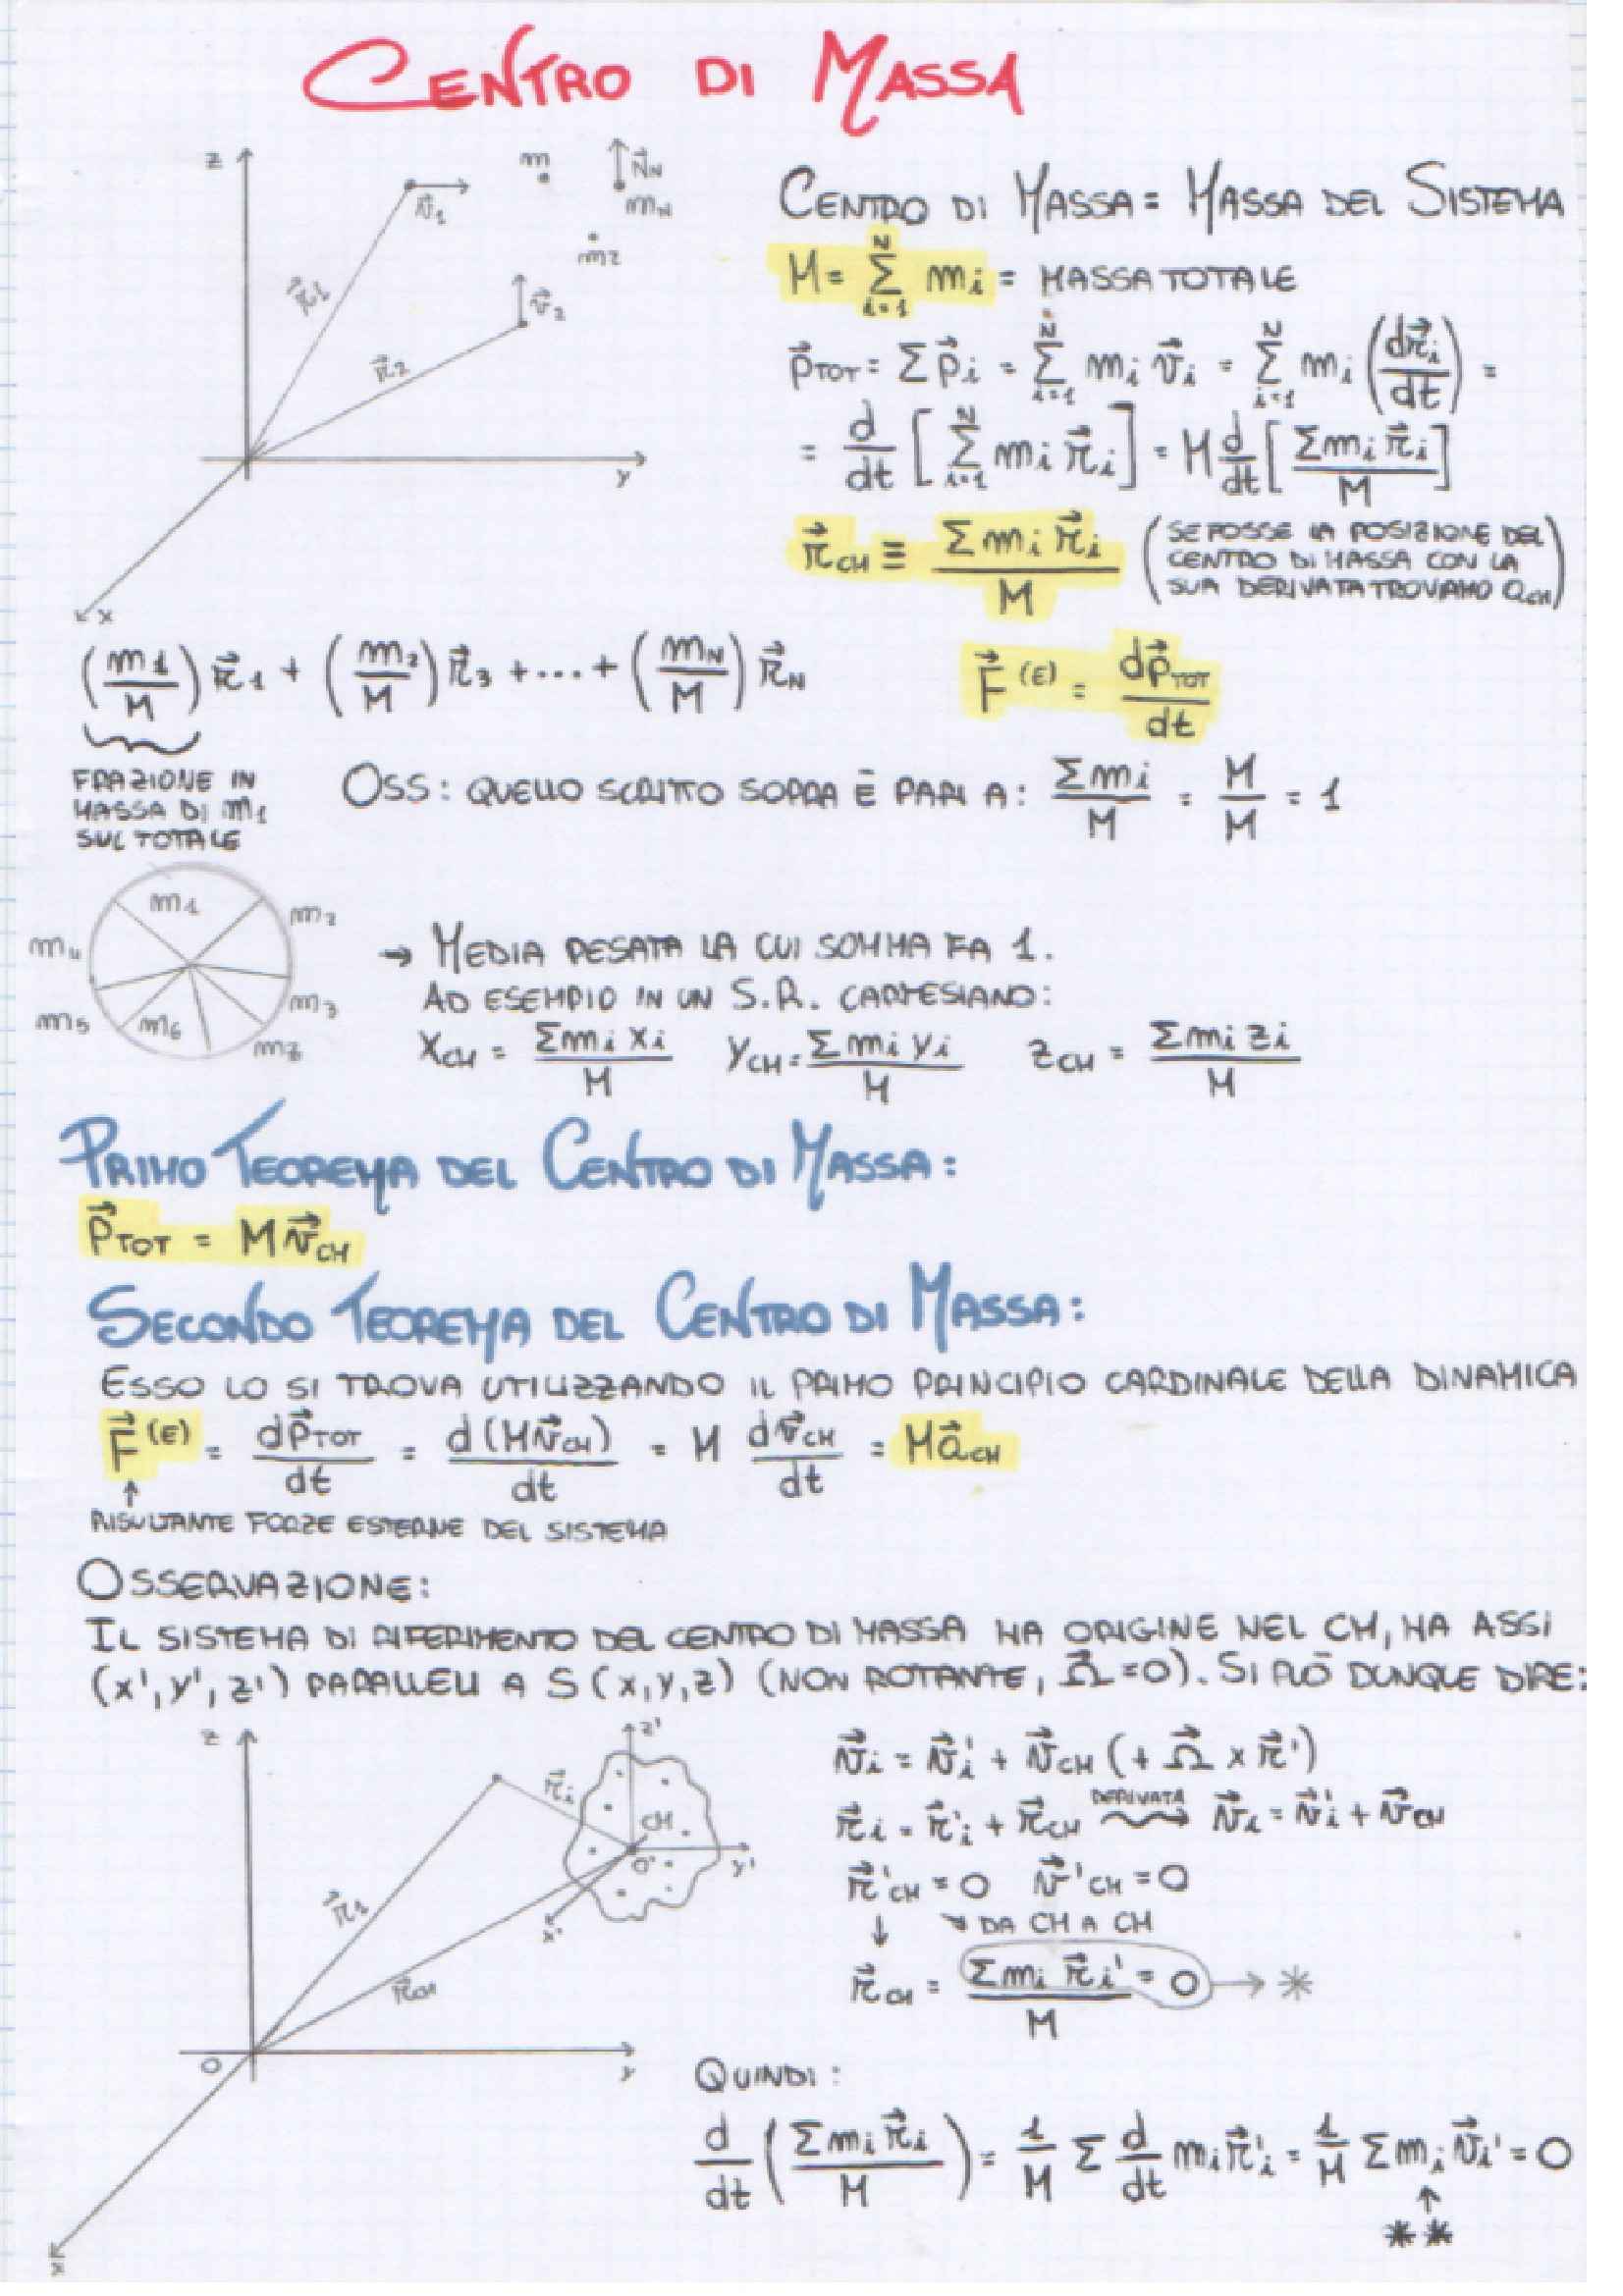 CENTRO DI MASSA
z
m
v⃗_N
v⃗_1
m_N
m_2
r⃗_1
v⃗_2
r⃗_2
y
x
CENTRO DI MASSA = MASSA DEL SISTEMA
M = Σ_{i=1}^{N} m_i = MASSA TOTALE
p⃗_TOT = Σ p⃗_i = Σ_{i=1}^{N} m_i v⃗_i = Σ_{i=1}^{N} m_i (dr⃗_i/dt) =
= d/dt [Σ_{i=1}^{N} m_i r⃗_i] = M d/dt [Σ m_i r⃗_i / M]
r⃗_CM ≡ Σ m_i r⃗_i / M (SE FOSSE LA POSIZIONE DEL
CENTRO DI MASSA CON LA
SUA DERIVATA TROVIAMO a_CM)
(m_1/M) r⃗_1 + (m_2/M) r⃗_3 + ... + (m_N/M) r⃗_N
F⃗^(E) = dp⃗_TOT/dt
FRAZIONE IN
MASSA DI m_1
SUL TOTALE
OSS: QUELLO SCRITTO SOPRA È PARI A: Σm_i/M = M/M = 1
m_1
m_2
m_4
m_3
m_5
m_6
m_7
→ MEDIA PESATA LA CUI SOMMA FA 1.
AD ESEMPIO IN UN S.R. CARTESIANO:
x_CM = Σm_i x_i / M y_CM = Σm_i y_i / M z_CM = Σm_i z_i / M
PRIMO TEOREMA DEL CENTRO DI MASSA:
p⃗_TOT = M v⃗_CM
SECONDO TEOREMA DEL CENTRO DI MASSA:
ESSO LO SI TROVA UTILIZZANDO IL PRIMO PRINCIPIO CARDINALE DELLA DINAMICA
F⃗^(E) = dp⃗_TOT/dt = d(M v⃗_CM)/dt = M dv⃗_CM/dt = M a⃗_CM
↑
RISULTANTE FORZE ESTERNE DEL SISTEMA
OSSERVAZIONE:
IL SISTEMA DI RIFERIMENTO DEL CENTRO DI MASSA HA ORIGINE NEL CM, HA ASSI
(x', y', z') PARALLELI A S(x,y,z) (NON ROTANTE, Ω⃗ = 0). SI PUÒ DUNQUE DIRE:
z
z'
r⃗_i
CM
O'
y'
x'
r⃗_1
r⃗_CM
O
y
x
v⃗_i = v⃗_i' + v⃗_CM (+ Ω⃗ x r⃗')
r⃗_i = r⃗_i' + r⃗_CM DERIVATA v⃗_i = v⃗_i' + v⃗_CM
r⃗'_CM = 0 v⃗'_CM = 0
↓ ↘ DA CM A CM
r⃗_CM = Σm_i r⃗_i' / M = 0 → *
QUINDI:
d/dt (Σ m_i r⃗_i / M) = 1/M Σ d/dt m_i r⃗_i' = 1/M Σ m_i v⃗_i' = 0
↑
**